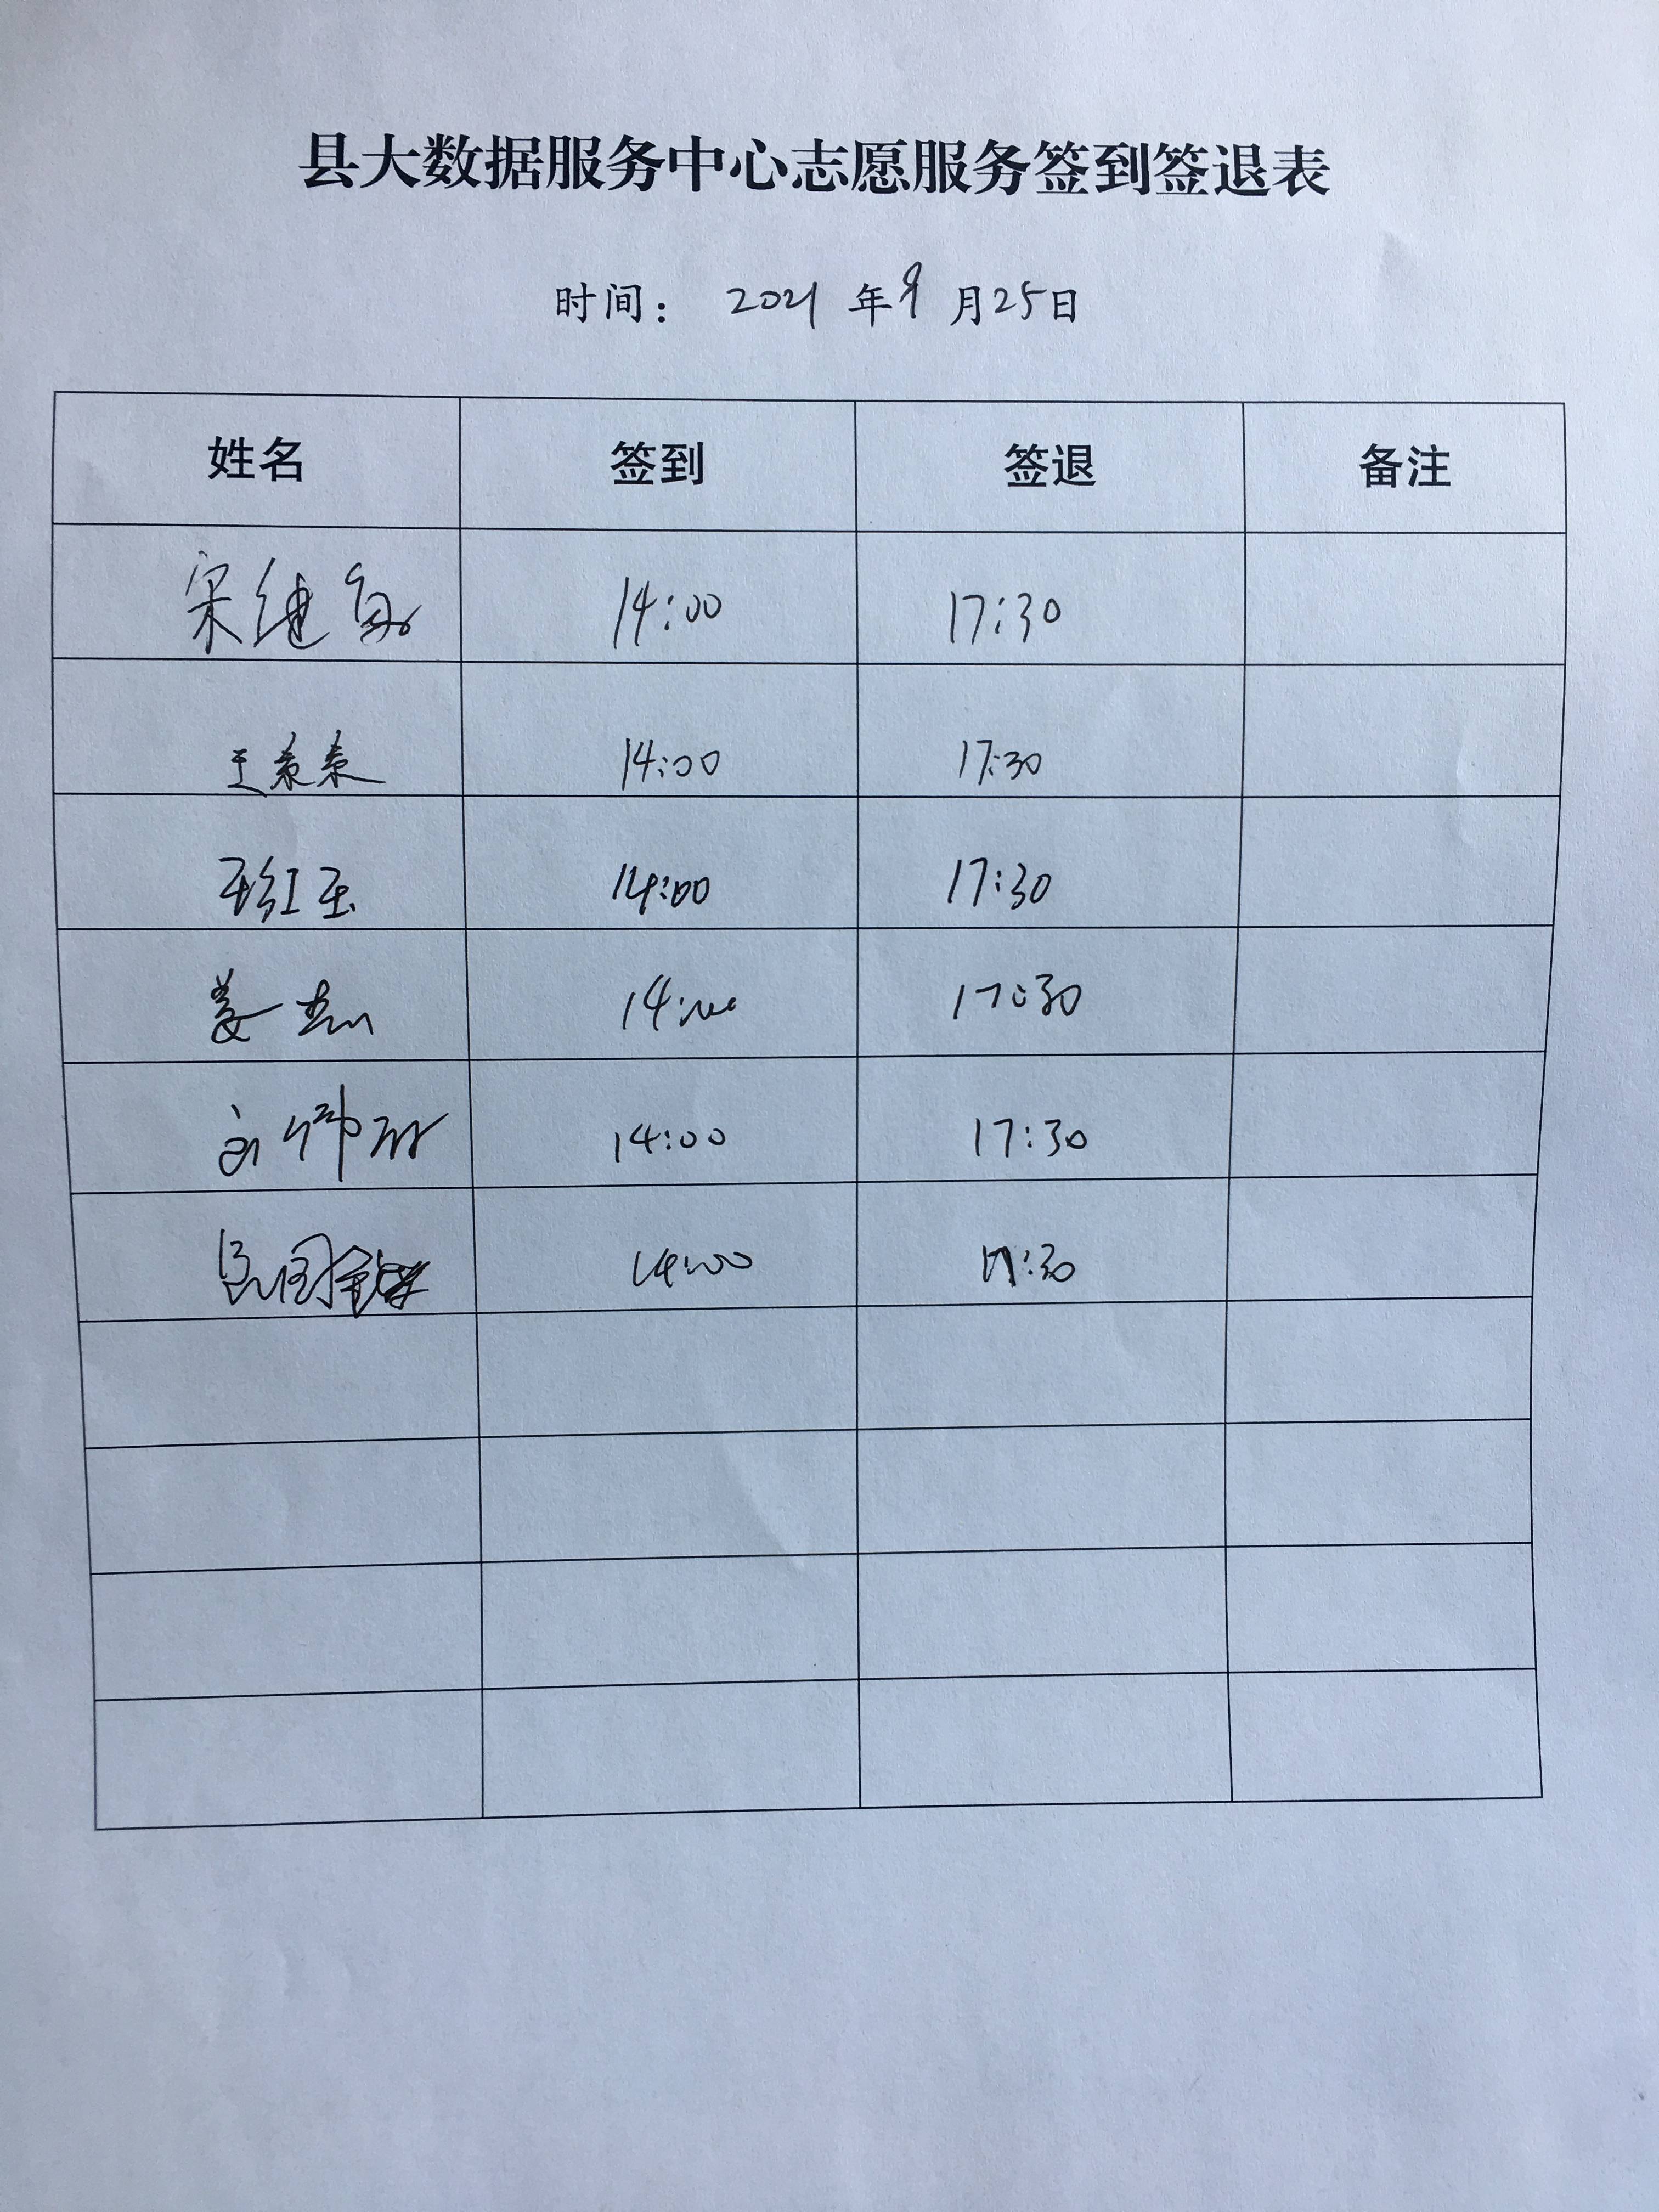 县大数据服务中心志愿服务签到签退表
时间： 2021 年 9 月 25 日
姓名 签到 签退 备注
宋继 14:00 17:30
王 14:00 17:30
红玉 14:00 17:30
姜杰 14:00 17:30
刘伟 14:00 17:30
国 14:00 17:30